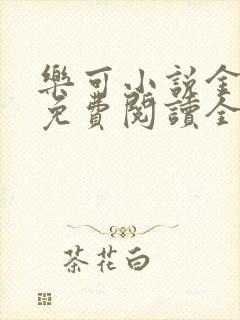 樂可小說金
免費閱讀全
茶花白